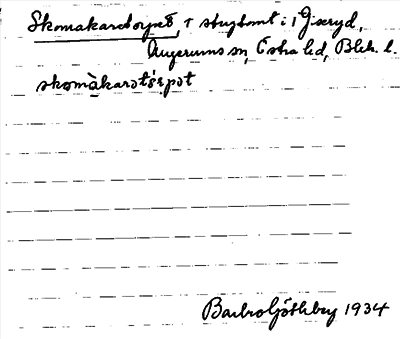 Skomakaretorpet, † stugtomt i 1 Giseryd,
Augerums sn, Östra hd, Blek. l.
skomàkarətɔrpət
Barbro Göthberg 1934